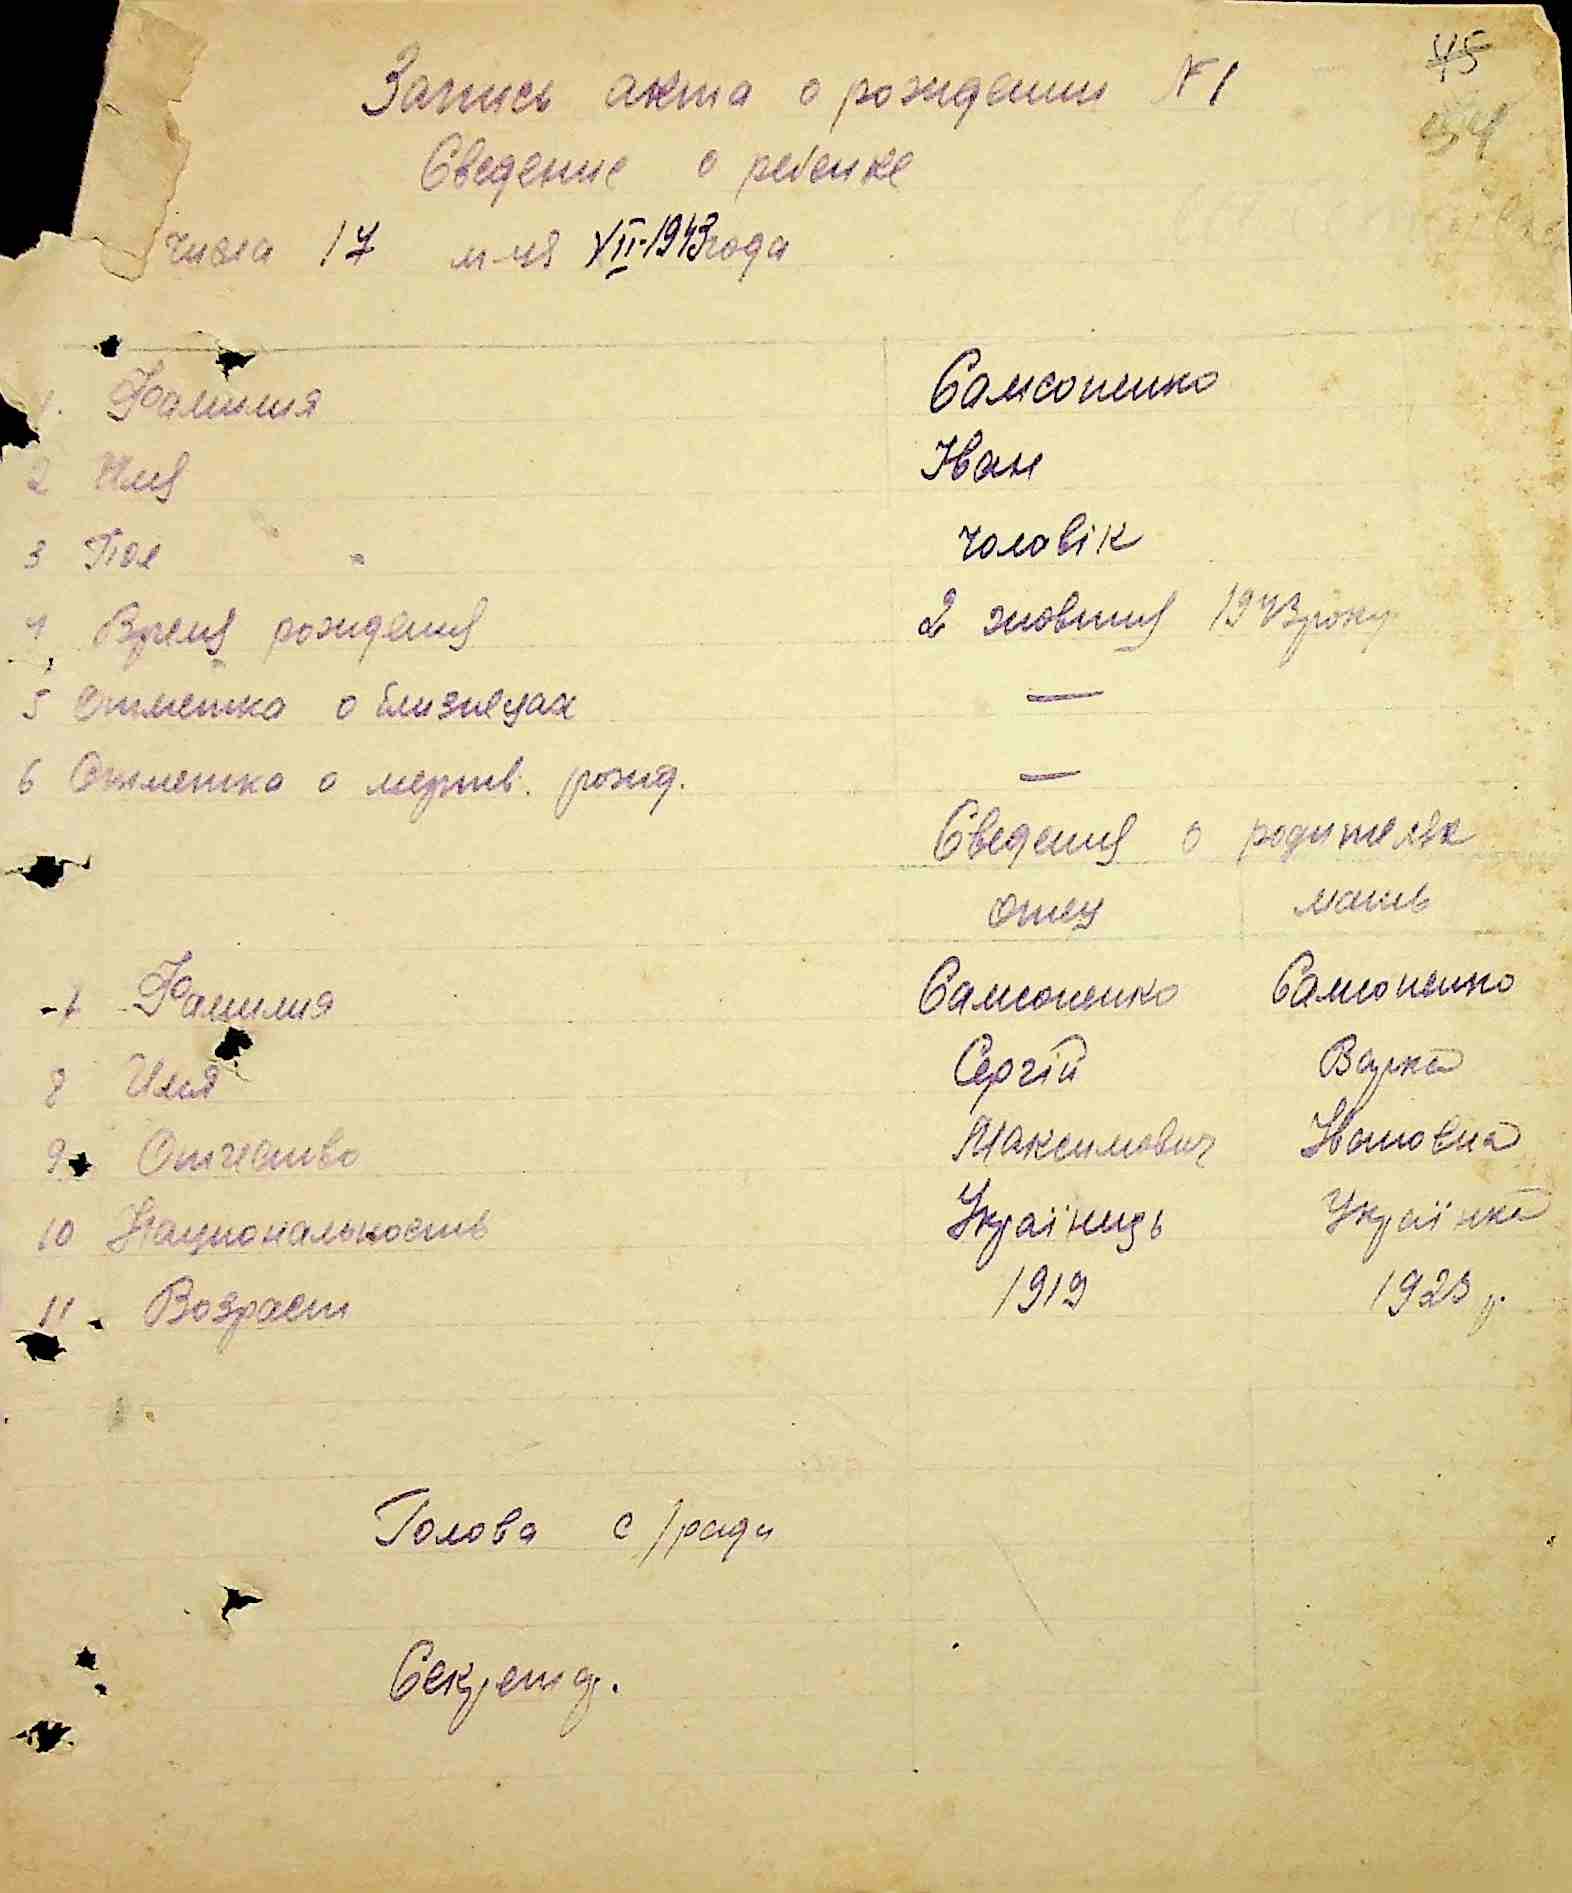 45
54
Запись акта о рождении № 1
Сведение о ребенке
числа 17 м-ця XII-1943 года
1. Фамилия Самсоненко
2 Имя Іван
3 Пол чоловік
4 Время рождения 2 жовтня 1943 року
5 Отметка о близнецах —
6 Отметка о мертв. рожд. —
Сведения о родителях
отец мать
7 Фамилия Самсоненко Самсоненко
8 Имя Сергій Варка
9. Отчество Максимович Івановна
10 Национальность Українець Українка
11. Возраст 1919 1923 р.
Голова с/ради
Секретар.